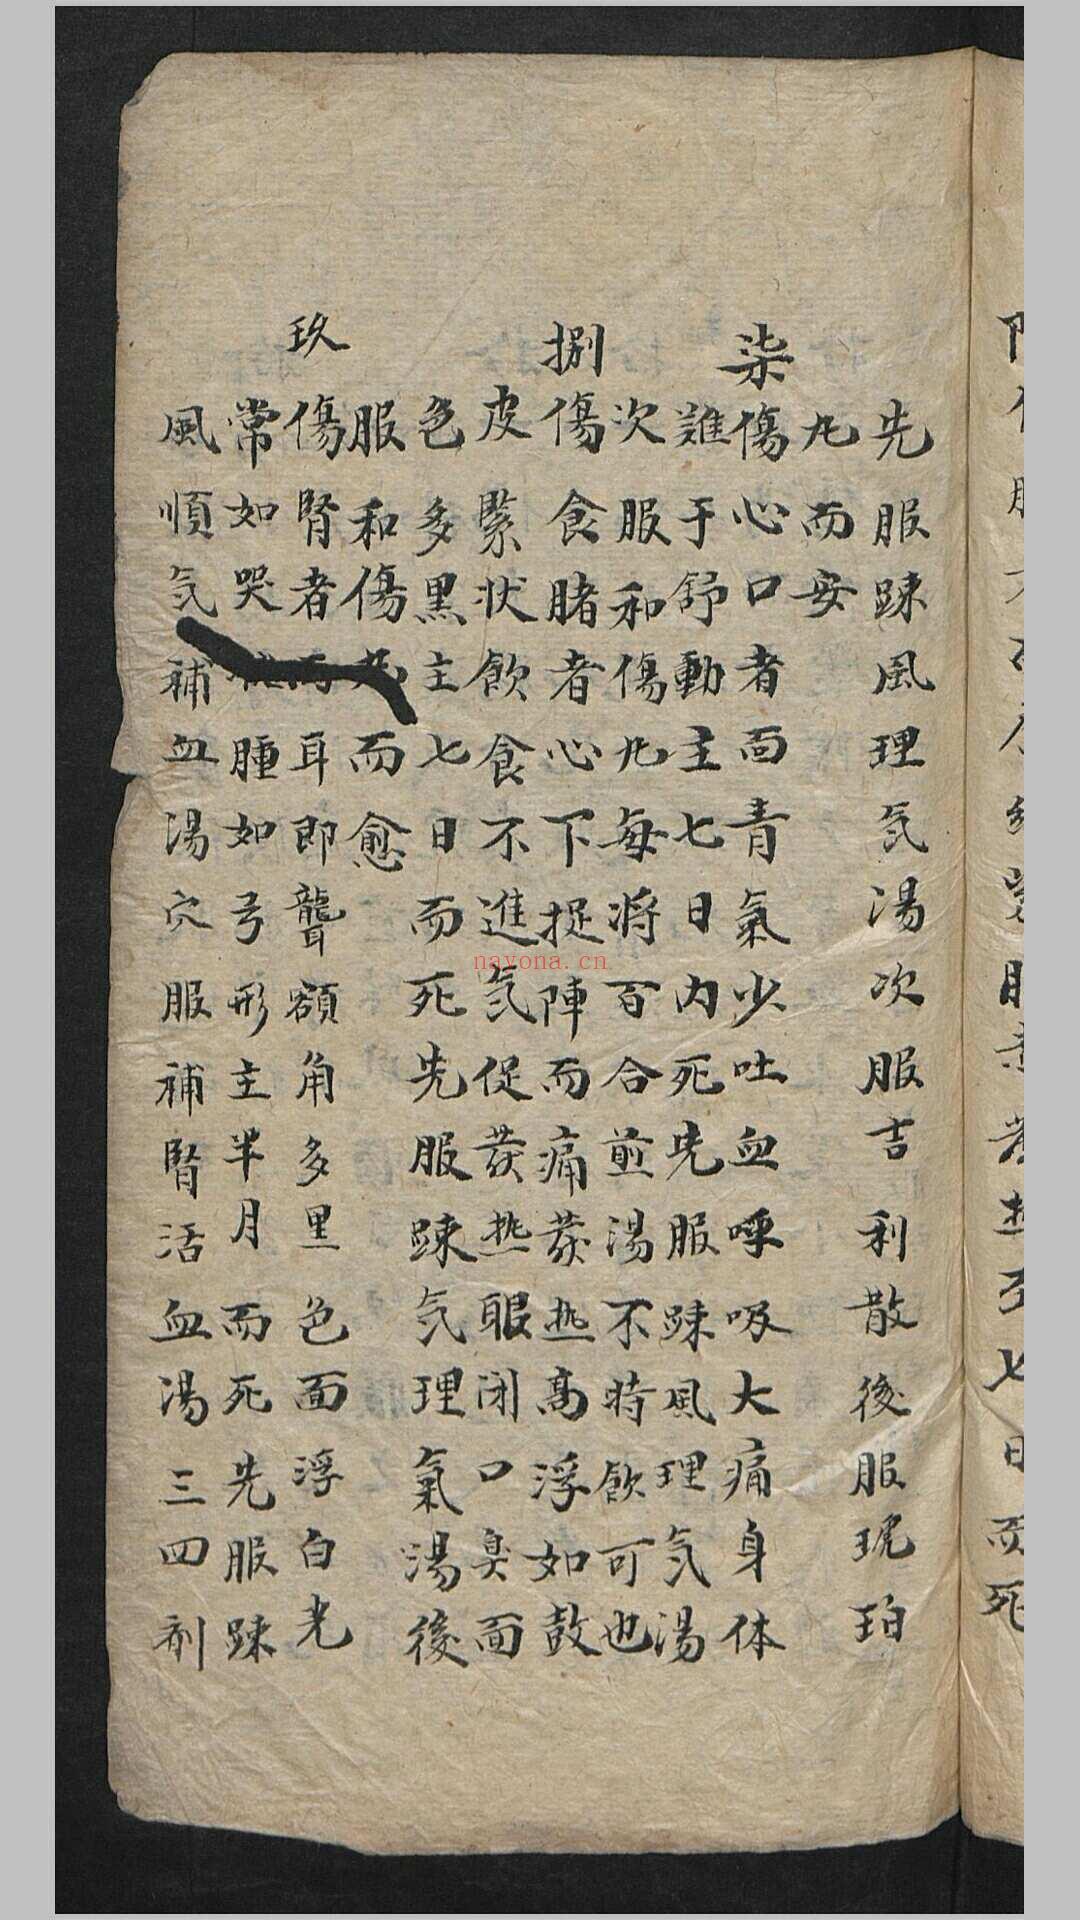 先服踈風理気湯次服吉利散後服琥珀
九而安
柒
傷心口者面青氣少吐血呼吸大痛身体
難于舒動主七日内死先服踈風理気湯
次服和傷九每將百合煎湯不時飲可也
捌
傷食賭者心下捉陣而痛䒵热高浮如鼓
皮緊状飲食不進気促䒵热眼闭口臭面
色多黒主七日而死先服踈気理氣湯後
服和傷九而愈
玖
傷腎者両耳即聾額角多黒色面浮白光
常如哭腫如弓形主半月而死先服踈
風順気補血湯穴服補腎活血湯三四剤
nayona.cn